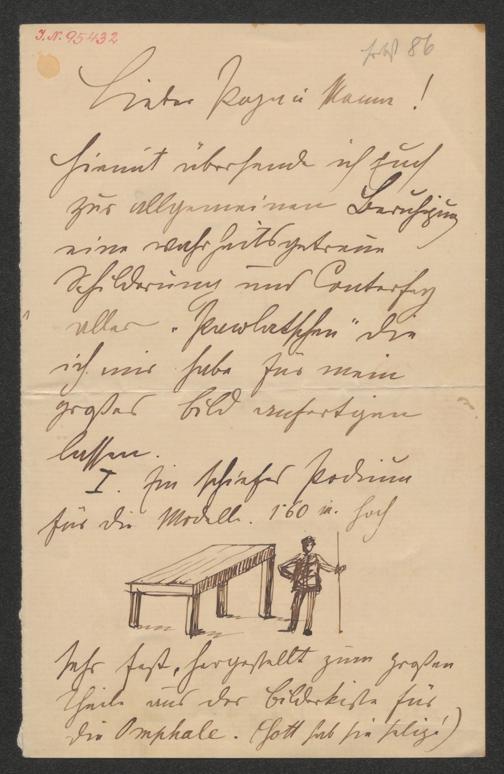 J.N. 95432
86
Lieber Papa u Mama!
hiemit übersende ich Euch
zur allgemeinen Beruhigung
eine wahrheitsgetreue
Schilderung und Conterfey
aller „Pawlatschen" die
ich mir habe für mein
großes Bild anfertigen
lassen.
I. Ein schiefes Podium
für die Modelle. 1·60 m. hoch
sehr fest, hergestellt zum großen
Theile aus der Bilderkiste für
die Omphale. (Gott hab sie selig!)